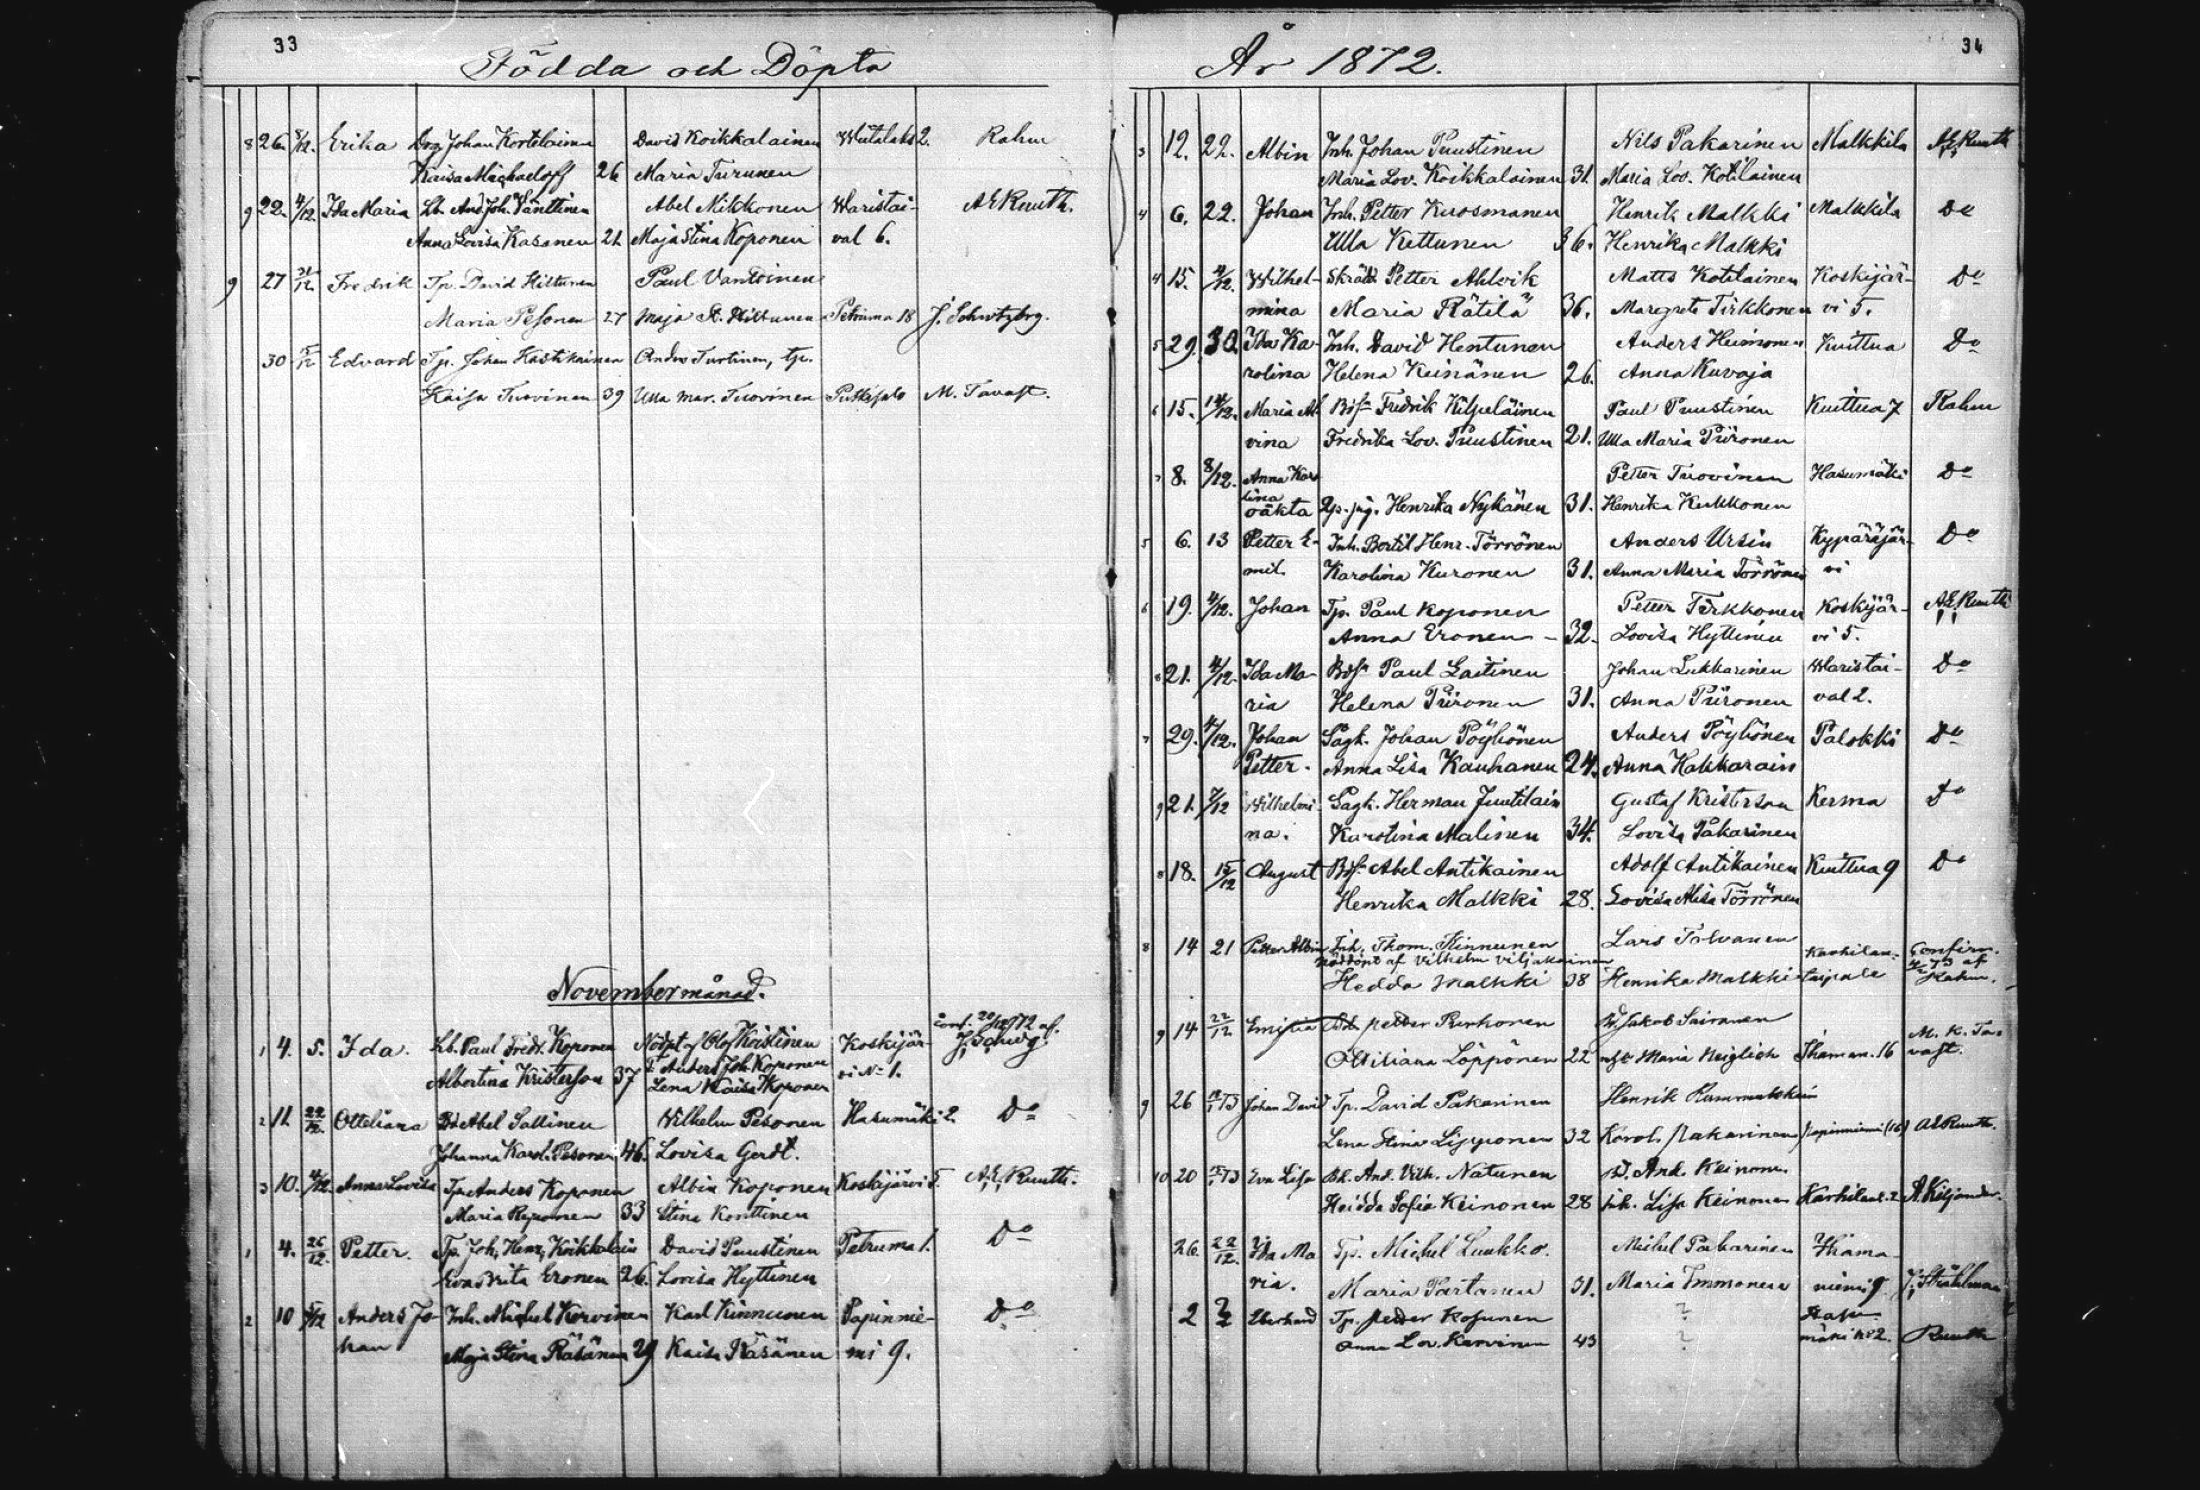 33
Födda och Döpta
8 26. 8/12. Erika Drg Johan Kortelainen David Koikkalainen Wiitalaks 2. Rahm
Kaisa Michaeloff 26 Maria Turunen
9 22. 4/12. Ida Maria Lb. And. Joh. Vänttinen Abel Mikkonen Waristai- AERuuth.
Anna Lovisa Kasanen 21 Maja Stina Koponen val 6.
9 27 Fredrik Tp. David Hiltunen Paul Vantoinen
Maria Pesonen 27 Maja St. Hiltunen Petruma 18 J. Schwtzbrg.
30 Edvard Tp. Johan Kastikainen Anders Turtinen, tp.
Kaisa Tuovinen 39 Ulla Mar. Tuovinen M. Tavast.
Novembermånad.
conf. 20/12 1872 af
1 4. 5. Ida. Lb. Paul Fredr. Koponen Nödpt af Olof Koistinen Koskijär-
Albertina Kristerson 37 Anders Joh. Koponen vi No 1.
Lena Kaisa Koponen
2 11. 22/12. Otteliana Bd Abel Sallinen Wilhelm Pesonen Hasumäki 2. Do
Johanna Karol. Pesonen 46. Lovisa Gerdt.
3 10. 4/12. Anna Lovisa Tp. Anders Koponen Albin Koponen Koskijärvi 5. A.E.Ruuth.
Maria Reponen 33 Stina Konttinen
1 4. 26/12. Petter. Tp. Joh. Henr. Koikkalain David Puustinen Petruma 1. Do
Eva Brita Eronen 26. Lovisa Hyttinen
2 10 Anders Jo- Inh. Michel Korvinen Karl Kinnunen Papinnie- Do
han Maja Stina Räsänen 29 Kaisa Räsänen mi 9.
34
År 1872.
3 12. 22. Albin Inh. Johan Puustinen Nils Pakarinen Malkkila AERuuth
Maria Lov. Koikkalainen 31. Maria Lov. Kotilainen
4 6. 22. Johan Inh. Petter Kuosmanen Henrik Malkki Malkkila Do
Ulla Kettunen 36. Henrika Malkki
4 15. 4/12. Wilhel- Skrädd Petter Ahlvik Matts Kotilainen Koskijär- Do
mina Maria Rätilä 36. Margreta Tirkkonen vi 5.
5 29. 30. Ida Ka- Inh. David Hentunen Anders Heimonen Kuittua Do
rolina Helena Keinänen 26. Anna Kuvaja
6 15. 14/12. Maria Al Bds Fredrik Kilpeläinen Paul Puustinen Kuittua 7 Rahm
vina Fredrika Lov. Puustinen 21. Ulla Maria Piironen
7 8. 8/12. Anna Karo Petter Tuovinen Hasumäki Do
lina
oäkta Qp. pig. Henrika Nykänen 31. Henrika Kukkonen
5 6. 13 Petter E- Inh. Bertil Henr. Törrönen Anders Ursin Kypäräjär- Do
mil. Karolina Kuronen 31. Anna Maria Törrönen vi
6 19. 4/12. Johan Tp. Paul Koponen Petter Tirkkonen Koskijär- AERuuth
Anna Eronen - 32. Lovisa Hyttinen vi 5.
6 21. 4/12. Ida Ma- Bds Paul Laitinen Johan Lukkarinen Waristai- Do
ria Helena Piironen 31. Anna Piironen val 2.
7 29. 4/12. Johan Sagk. Johan Pöyhönen Anders Pöyhönen Palokki Do
Petter. Anna Lisa Kauhanen 24. Anna Hakkarain
9 21. 7/12 Wilhelmi- Sagk. Herman Juutilain Gustaf Kristerson Kerma Do
na. Karolina Malinen 34. Lovisa Pakarinen
8 18. 15/12 August Bds Abel Antikainen Adolf Antikainen Kuittua 9 Do
Henrika Malkki 28. Lovisa Alisa Törrönen
8 14 21 Petter Albin Inh. Thom. Kinnunen Lars Tolvanen Karhilan- Confirm.
nöddöpt af Vilhelm Viljakainen
Hedda Malkki 38 Henrika Malkki taipale Rahm.
9 14 22/12 Emilia Bd. Petter Purhonen Bd. Jakob Sairanen M. K. Ta-
Ottiliana Löppönen 22 Maria Neiglich Ihaman. 16 vast.
9 26 Johan David Tp. David Pakarinen Henrik
Lena Stina Lipponen 32 Karol. Pakarinen Papinniemi (16) AERuuth.
10 20 Eva Lisa Bd. And. Vilh. Natunen Bd. And. Keinon.
Heidda Sofia Keinonen 28 Inh. Lisa Keinonen Karhilant. 2 A. Kiljander.
26. 22/12. Ida Ma Tp. Michel Luukko. Michel Pakarinen Ihama-
ria. Maria Partanen 31. Maria Immonen niemi 9 J. Stråhlman
2 ? Eberhard Tp. Petter Kosunen ?
Anna Lov. Karvinen 43 ? mäki No 2. Ruuth